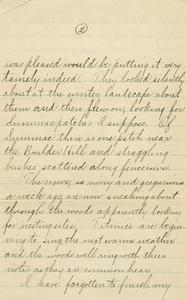 2
was pleased would be putting it very
tamely indeed. They looked silently
about at the winter landscape about
them and then flew on, looking for
sumac patches I suppose. Of
sumac there is one patch near
the Boulder Hill and straggling
bushes scattered along fencerows.
The crows, so noisy and gregarious
a week ago are now sneaking about
through the woods apparently looking
for nesting sites. Titmice are begin-
ning to sing the next warm weather
and the woods will ring with their
notes as they are common here.
I have forgotten to finish my